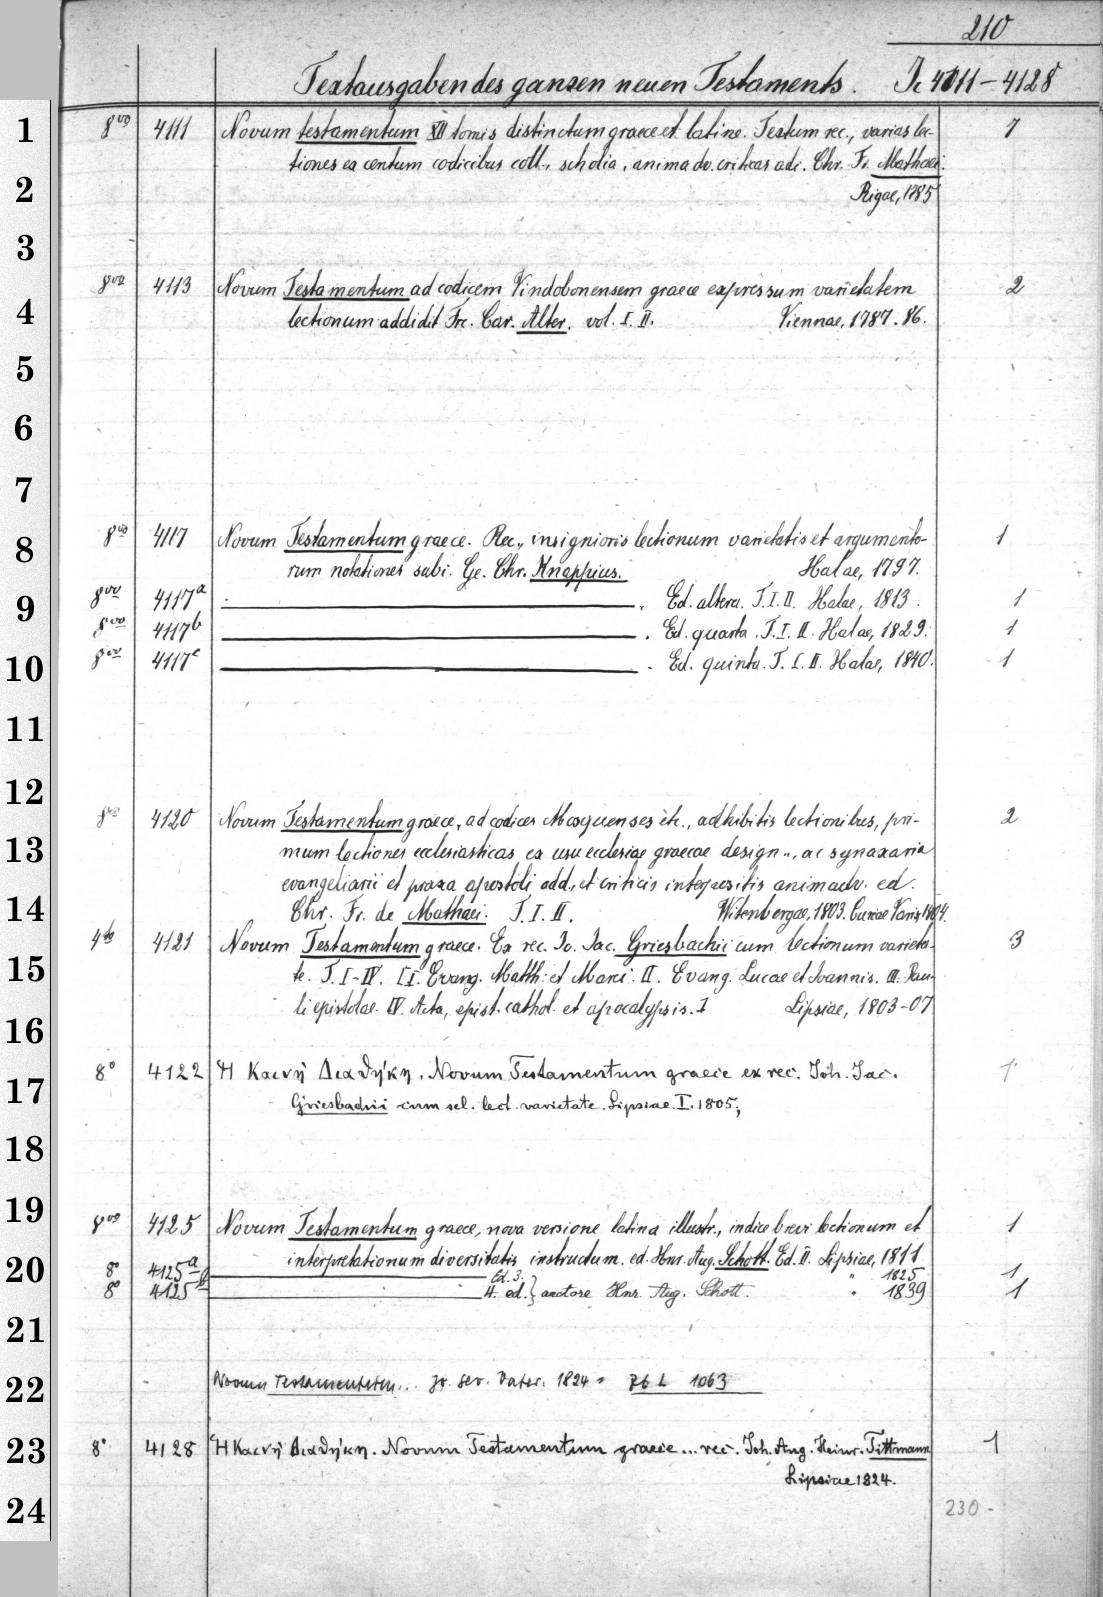 210
Textausgaben des ganzen neuen Testaments. Ic 4111 – 4128
1 8vo 4111 Novum testamentum XII tomis distinctum graece et latine. Textum rec., varias lec- 7
tiones ex centum codicibus coll., scholia, animadv. criticas adi. Chr. Fr. Matthaei.
2 Rigae, 1785
3
8vo 4113 Novum Testamentum ad codicem Vindobonensem graece expressum varietatem 2
4 lectionum addidit Frc. Car. Alter. vol. I. II. Viennae, 1787. 86.
5
6
7
8vo 4117 Novum Testamentum graece. Rec., insignioris lectionum varietatis et argumento- 1
8 rum notationes subi. Ge. Chr. Knappius. Halae, 1797.
9 8vo 4117a . Ed. altera. T. I. II. Halae, 1813. 1
8vo 4117b . Ed. quarta. T. I. II. Halae, 1829. 1
10 8vo 4117c . Ed. quinta. T. I. II. Halae, 1840. 1
11
12
8vo 4120 Novum Testamentum graece, ad codices Mosquenses etc., adhibitis lectionibus, pri- 2
13 mum lectiones ecclesiasticas ex usu ecclesiae graecae design., ac synaxaria
evangeliarii et praxa apostoli add., et criticis interpositis animadv. ed.
14 Chr. Fr. de Matthaei. T. I. II. Witenbergae, 1803. Curiae Varis, 1804.
4to 4121 Novum Testamentum graece. Ex rec. Jo. Jac. Griesbachii cum lectionum varieta- 3
15 te. T. I–IV. [I. Evang. Matth. et Marci. II. Evang. Lucae et Joannis. III. Pau-
li epistolae. IV. Acta, epist. cathol. et apocalypsis.] Lipsiae, 1803–07
16
8° 4122 Ἡ Καινὴ Διαθήκη. Novum Testamentum graece ex rec. Joh. Jac. 1
17 Griesbachii cum sel. lect. varietate. Lipsiae. I. 1805;
18
19
8vo 4125 Novum Testamentum graece, nova versione latina illustr., indice brevi lectionum et 1
interpretationum diversitatis instructum. ed. Hnr. Aug. Schott. Ed. II. Lipsiae, 1811
20 8° 4125a Ed. 3. " 1825 1
8° 4125b 4. ed. } auctore Hnr. Aug. Schott. " 1839 1
21
22 Novum Testamentum... gr. 1824 = 1063
23 8° 4128 Ἡ Καινὴ Διαθήκη. Novum Testamentum graece ... rec. Joh. Aug. Heinr. Tittmann 1
Lipsiae 1824.
24 230 -